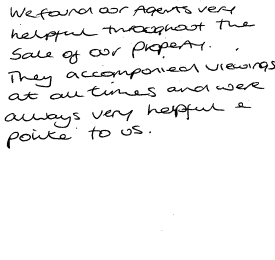 We found our Agents very
helpful throughout the
Sale of our Property.
They accompanied viewings
at all times and were
always very helpful &
polite to us.